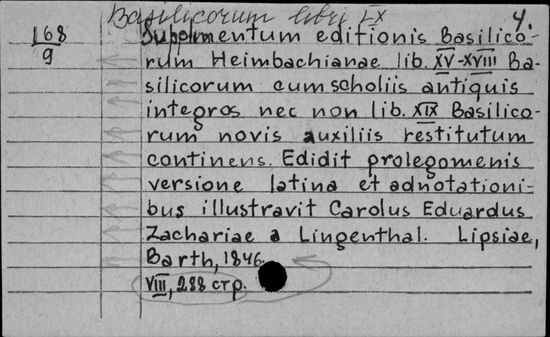 Basilicorum libri LX
4.
168
9
Supplmentum editionis Basilico-
rum Heimbachianae lib. XV-XVIII Ba-
silicorum cum scholiis antiquis
integros nec non lib. XIX Basilico-
rum novis auxiliis restitutum
continens. Edidit prolegomenis
versione latina et adnotationi-
bus illustravit Carolus Eduardus
Zachariae a Lingenthal. Lipsiae,
Barth, 1846.
VIII, 288 стр.